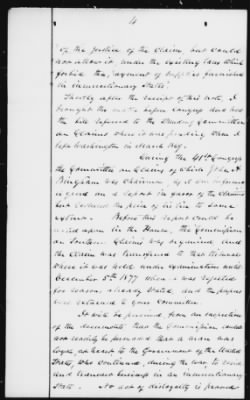 4
of the justice of the claim, but could
not allow it, under the existing laws which
forbid the payment of supplies furnished
in insurrectionary States.
Shortly after the receipt of this note, I
brought the matter before Congress and had
the bill referred to the Standing Committee
on Claims where it was pending when I
left Washington in March
During the 41st Congress
the Committee on Claims of which John A
Bingham was Chairman,
agreed on a report in favor of the claim
but reduced the price of to some
extent. Before this report could be
acted upon in the House, the Commission
on Southern Claims was organized and
the claim was transferred to that tribunal
where it was held under examination until
December 5th 1877 when it was rejected
for reasons already stated, and the papers
were returned to your Committee.
It will be perceived from an inspection
of the documents that the Commission could
not readily be persuaded that a man was
loyal at heart to the Government of the United
States, who continued, during the war, to reside
and transact business in an insurrectionary
State. No act of disloyalty is proved